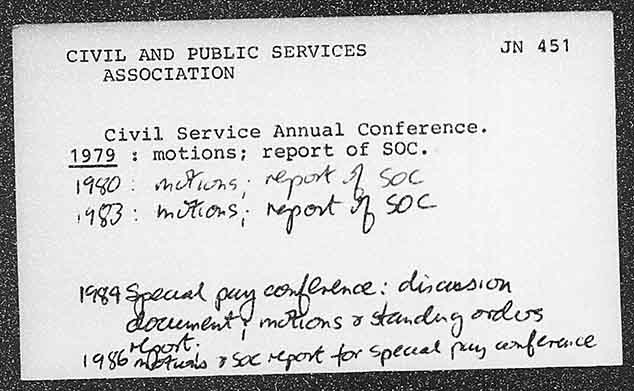 CIVIL AND PUBLIC SERVICES JN 451
ASSOCIATION
Civil Service Annual Conference.
1979 : motions; report of SOC.
1980 : motions; report of SOC
1983 : motions; report of SOC
1984 Special pay conference : discussion
document; motions & standing orders
report.
1986 motions & SOC report for special pay conference